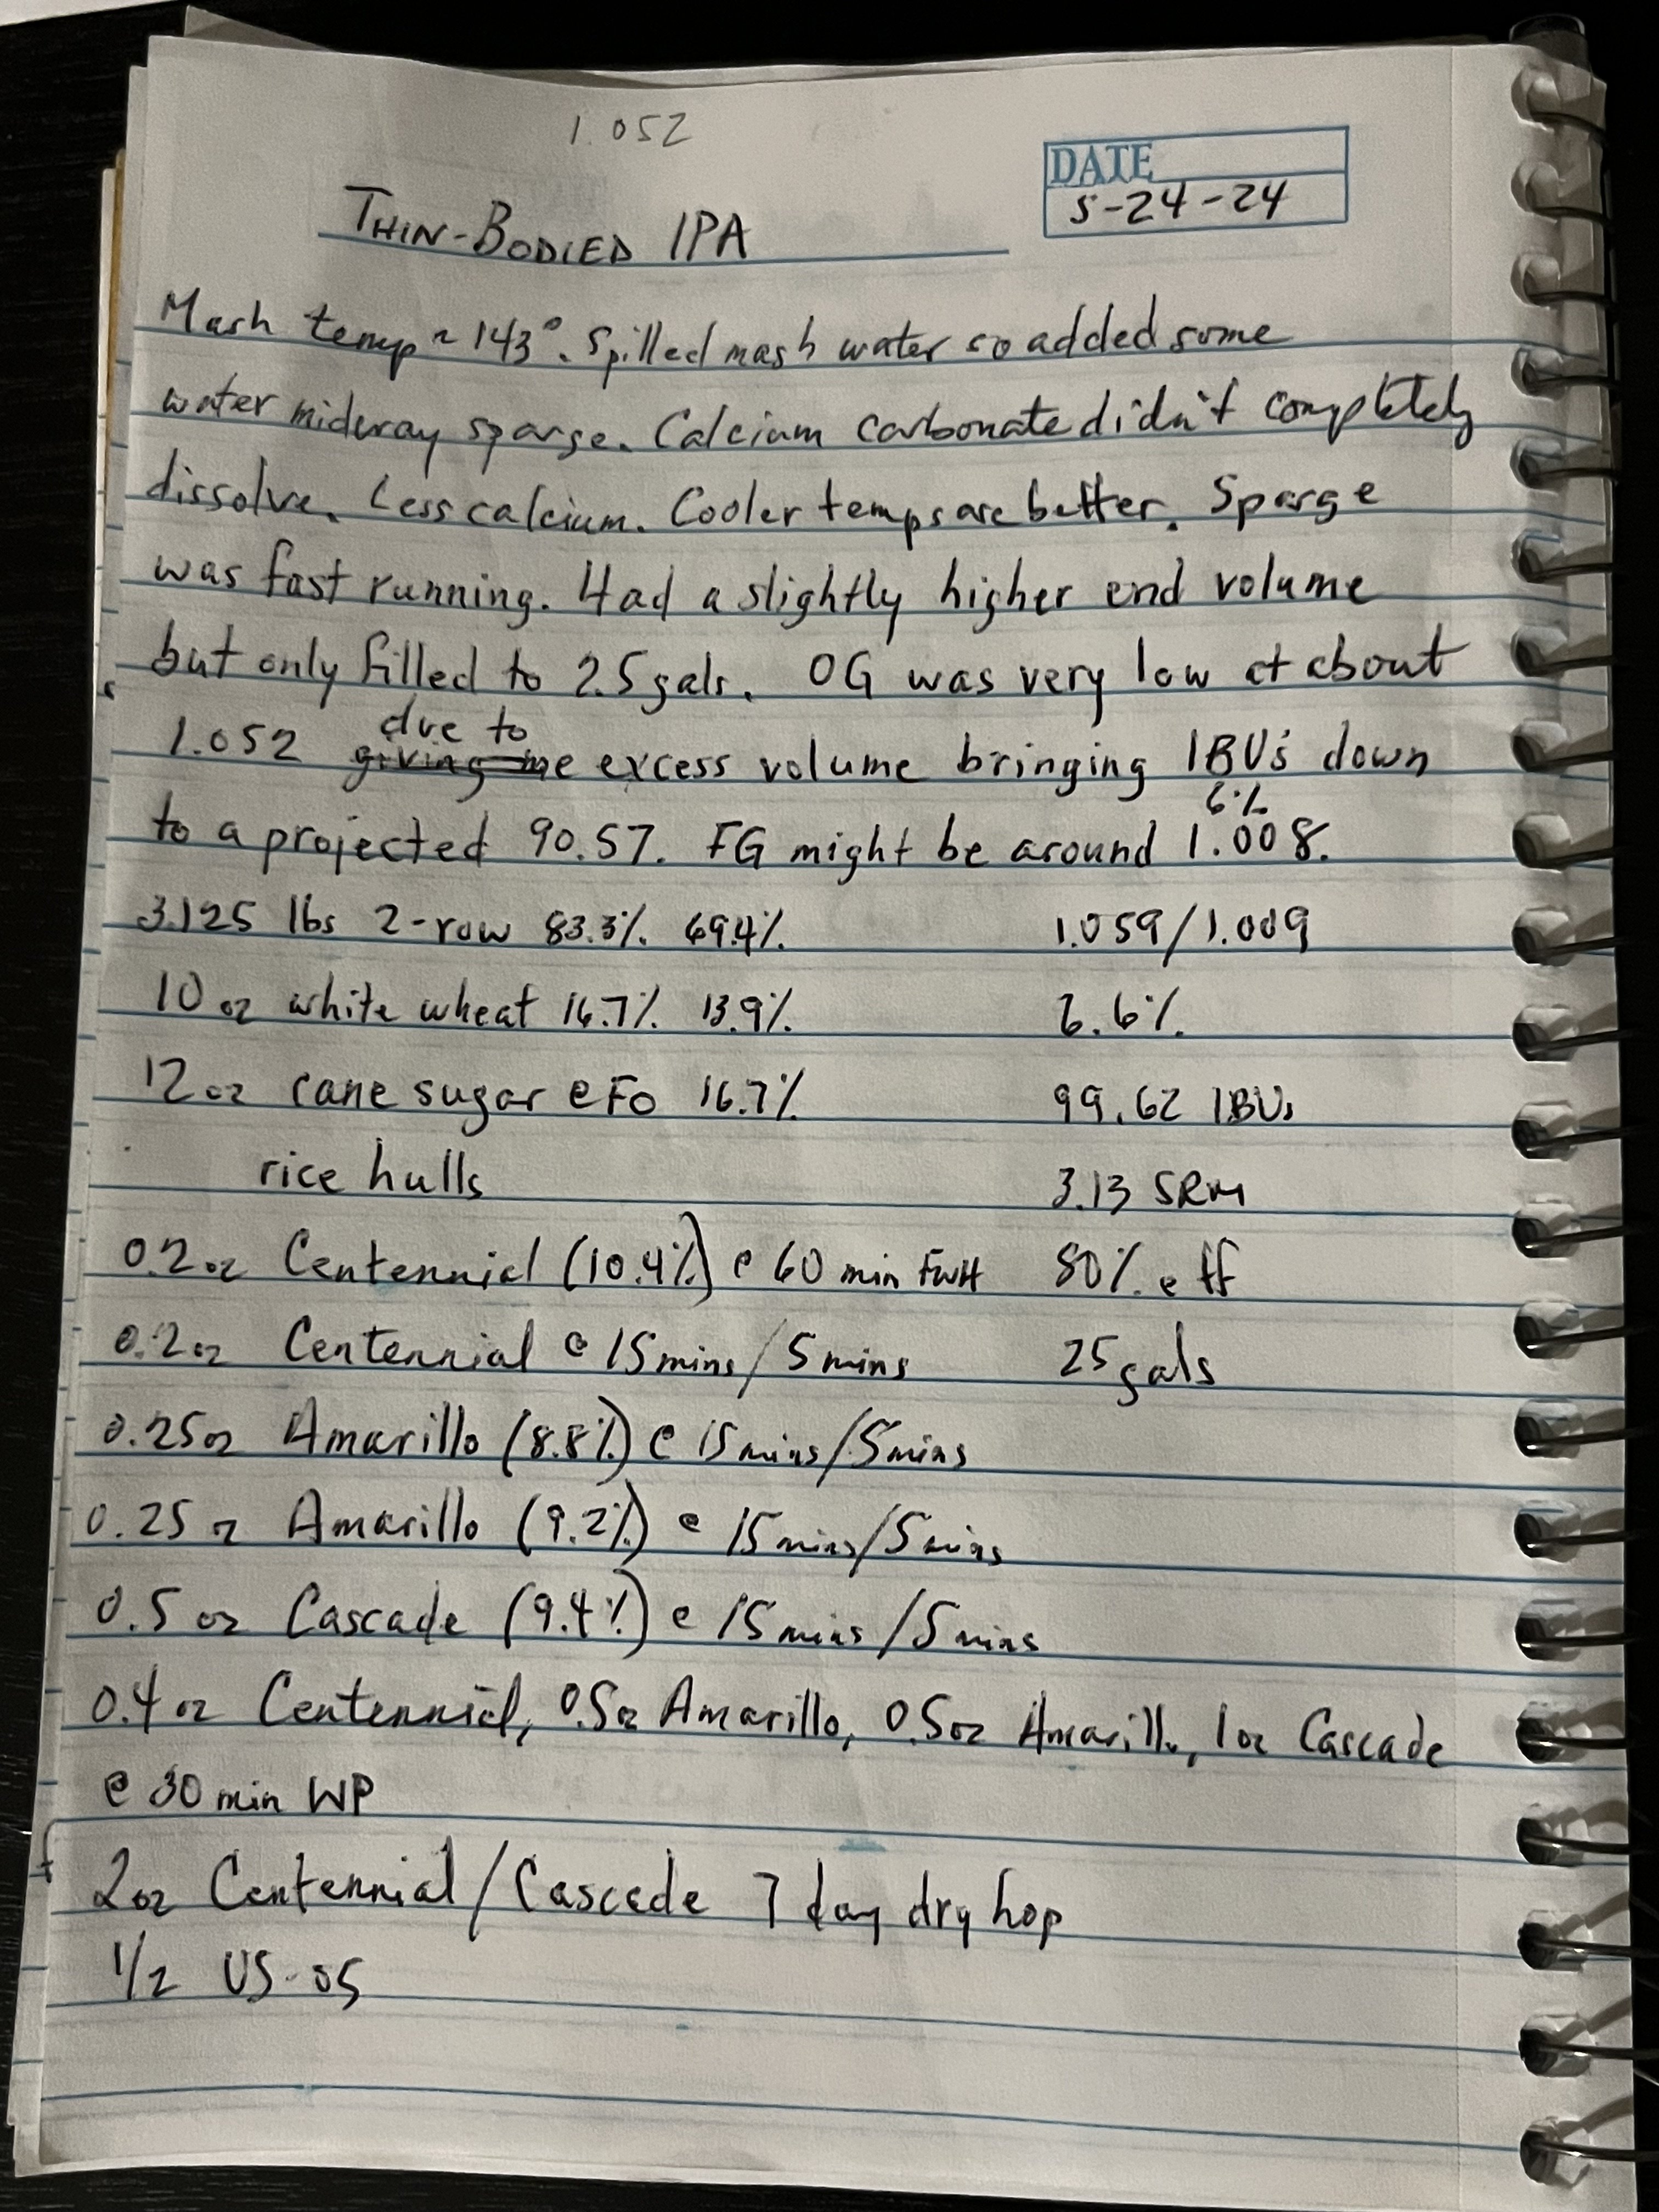 1.052
DATE
5-24-24
THIN-BODIED IPA
Mash temp ~ 143°. Spilled mash water so added some
water midway sparge. Calcium carbonate didn't completely
dissolve. Less calcium. Cooler temps are better. Sparge
was fast running. Had a slightly higher end volume
but only filled to 2.5 gals. OG was very low at about
due to
1.052 giving me excess volume bringing IBUs down
6%
to a projected 90.57. FG might be around 1.008.
3.125 lbs 2-row 83.3% 69.4% 1.059/1.009
10 oz white wheat 16.7% 13.9% 6.6%
12 oz cane sugar @ FO 16.7% 99.62 IBUs
rice hulls 3.13 SRM
0.2 oz Centennial (10.4%) @ 60 min FWH 80% eff
0.2 oz Centennial @ 15 mins/5 mins 25 gals
0.25 oz Amarillo (8.8%) @ 15 mins/5 mins
0.25 oz Amarillo (9.2%) @ 15 mins/5 mins
0.5 oz Cascade (9.4%) @ 15 mins/5 mins
0.4 oz Centennial, 0.5 oz Amarillo, 0.5 oz Amarillo, 1 oz Cascade
@ 30 min WP
2 oz Centennial/Cascade 7 day dry hop
1/2 US-05